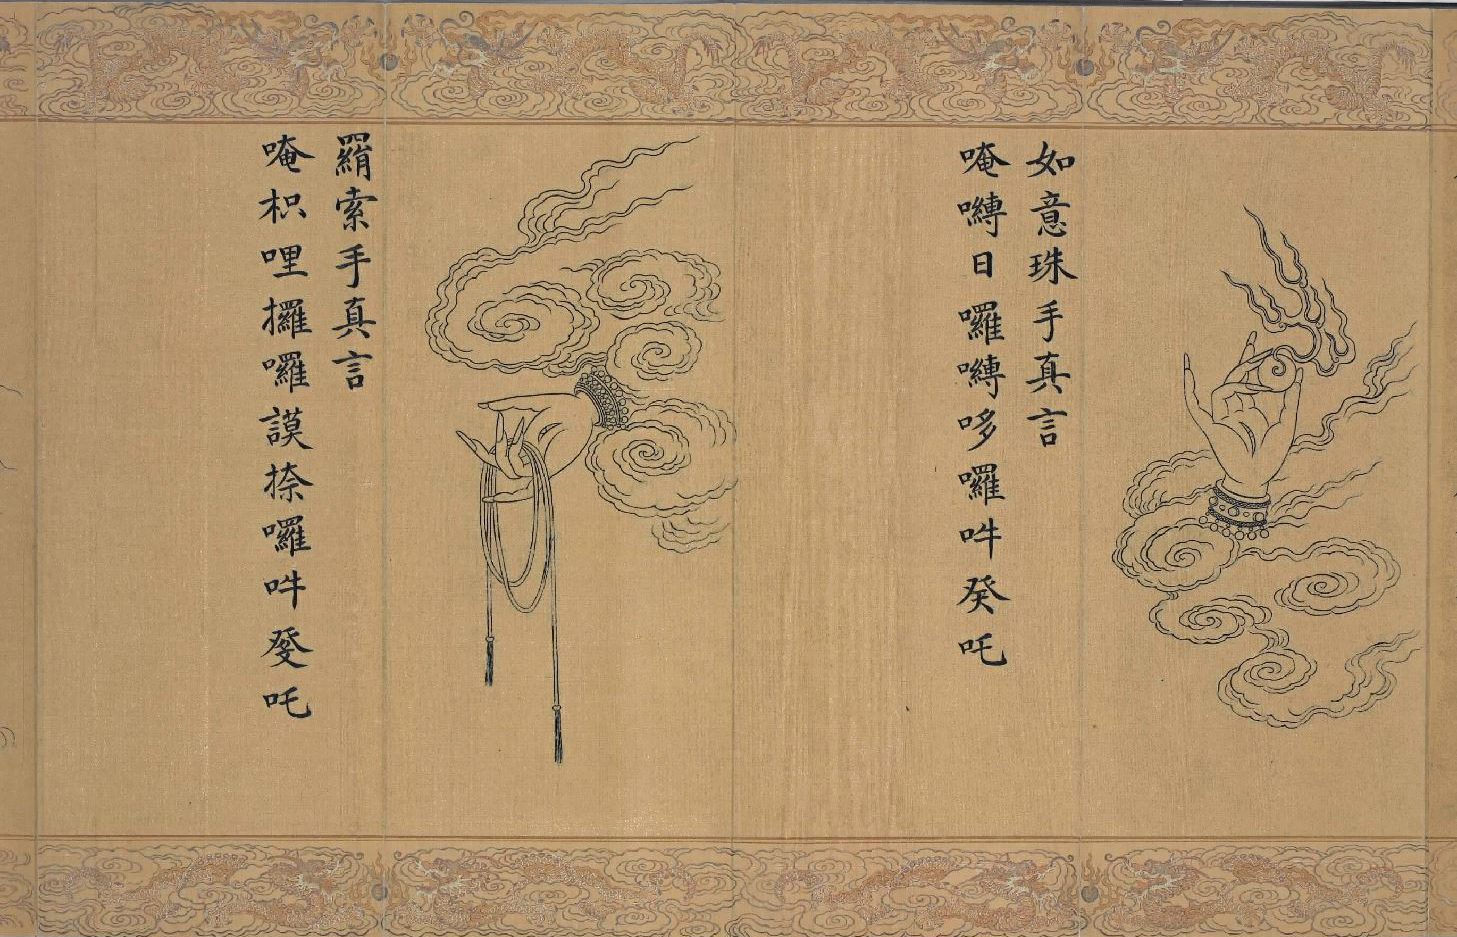 如意珠手真言
唵嚩日囉嚩哆囉吽癸吒
羂索手真言
唵枳哩攞囉謨捺囉吽癹吒